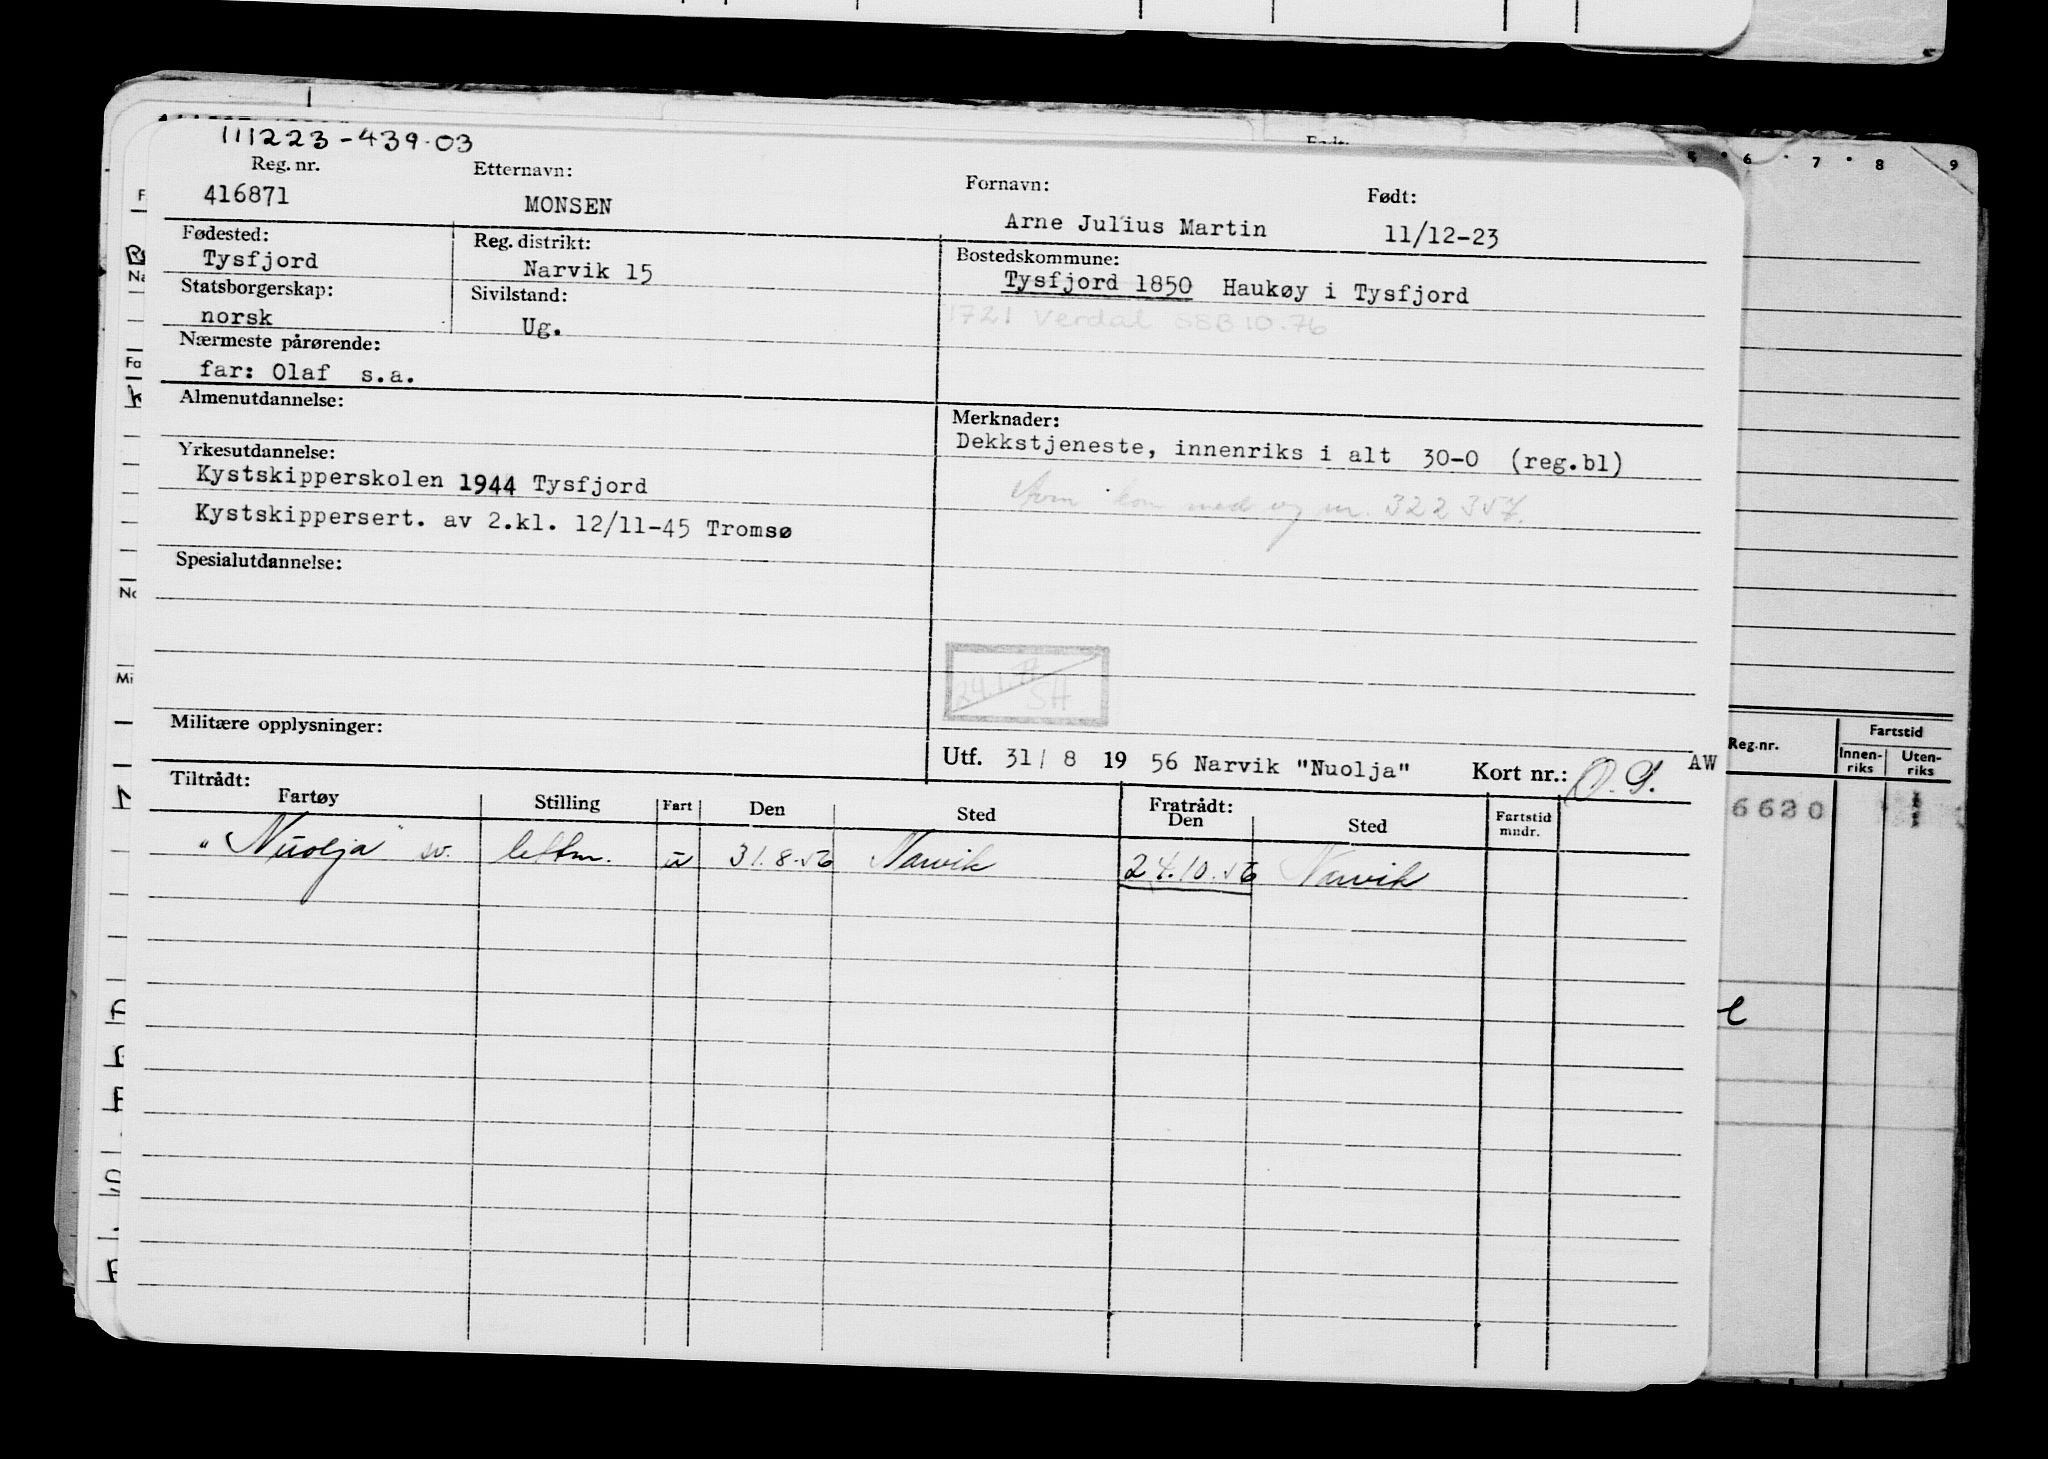 111223-439.03
Reg. nr. Etternavn: Fornavn: Født:
416871 MONSEN Arne Julius Martin 11/12-23
Fødested: Reg. distrikt: Bostedskommune:
Tysfjord Narvik 15 Tysfjord 1850 Haukøy i Tysfjord
Statsborgerskap: Sivilstand:
norsk Ug.
1721 Verdal 08B10.76
Nærmeste pårørende:
far: Olaf s.a.
Almenutdannelse:
Merknader:
Dekkstjeneste, innenriks i alt 30-0 (reg.bl)
kom med og nr. 322357.
Yrkesutdannelse:
Kystskipperskolen 1944 Tysfjord
Kystskippersert. av 2.kl. 12/11-45 Tromsø
Spesialutdannelse:
SH
Militære opplysninger:
Utf. 31/ 8 19 56 Narvik "Nuolja" Kort nr.: AW
Tiltrådt: Fratrådt:
Fartøy Stilling Fart Den Sted Den Sted Fartstid mndr.
"Nuolja" sv. lettm. u 31.8.56 Narvik 24.10.56 Narvik
5 6 7 8 9
Reg.nr. Fartstid
Innen-riks Uten-riks
6620